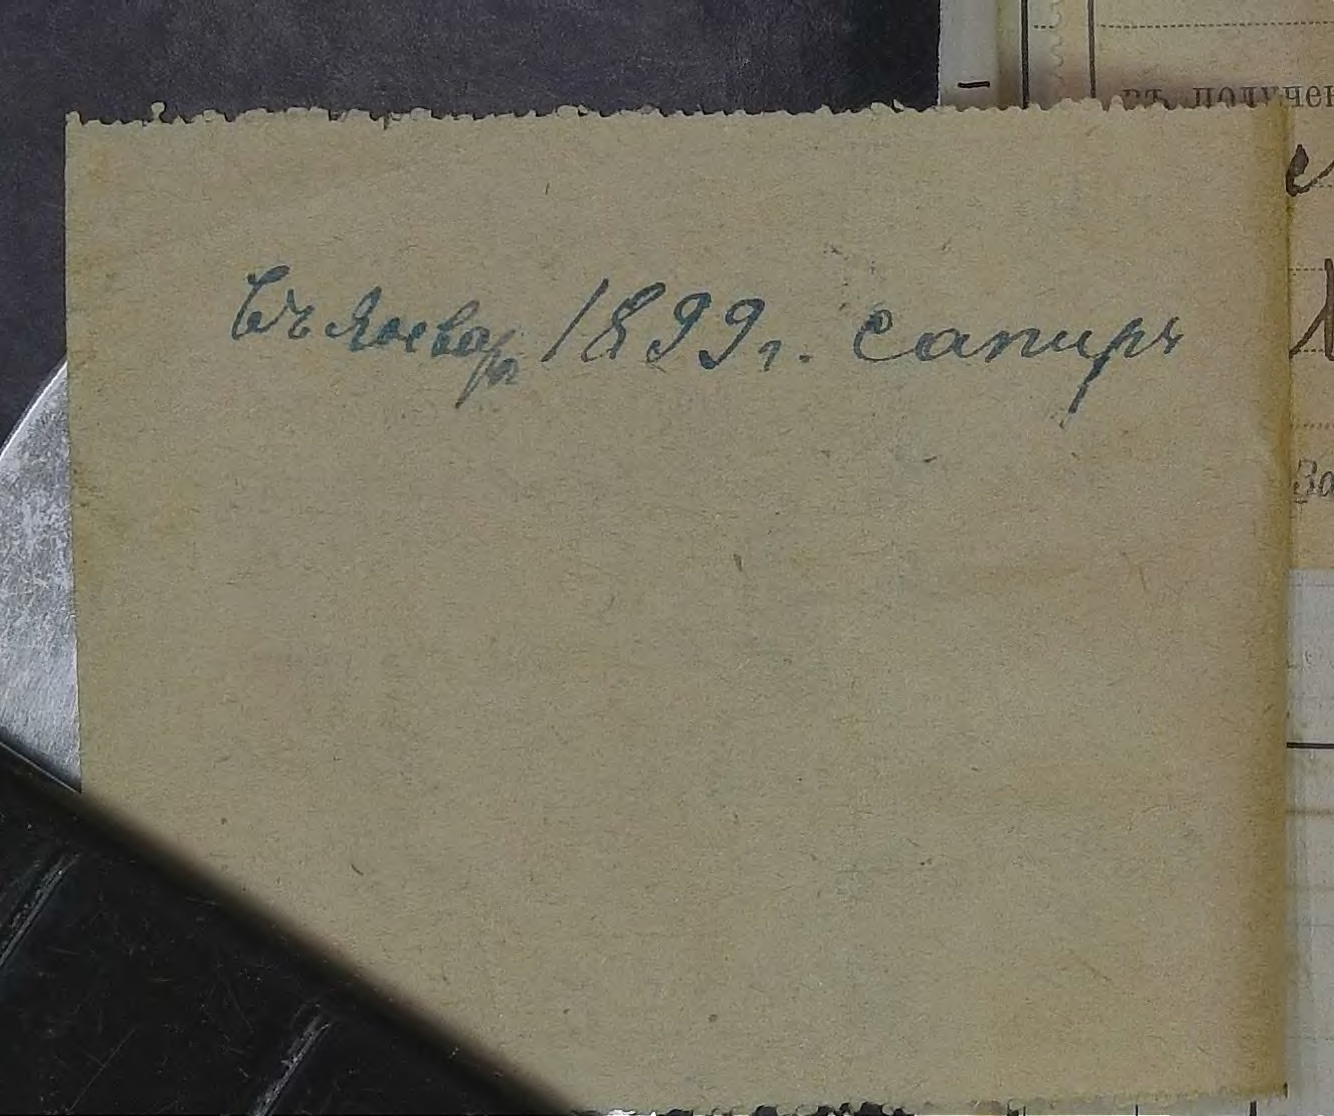 въ получен
Въ Январ 1899 г. Сапиръ
За